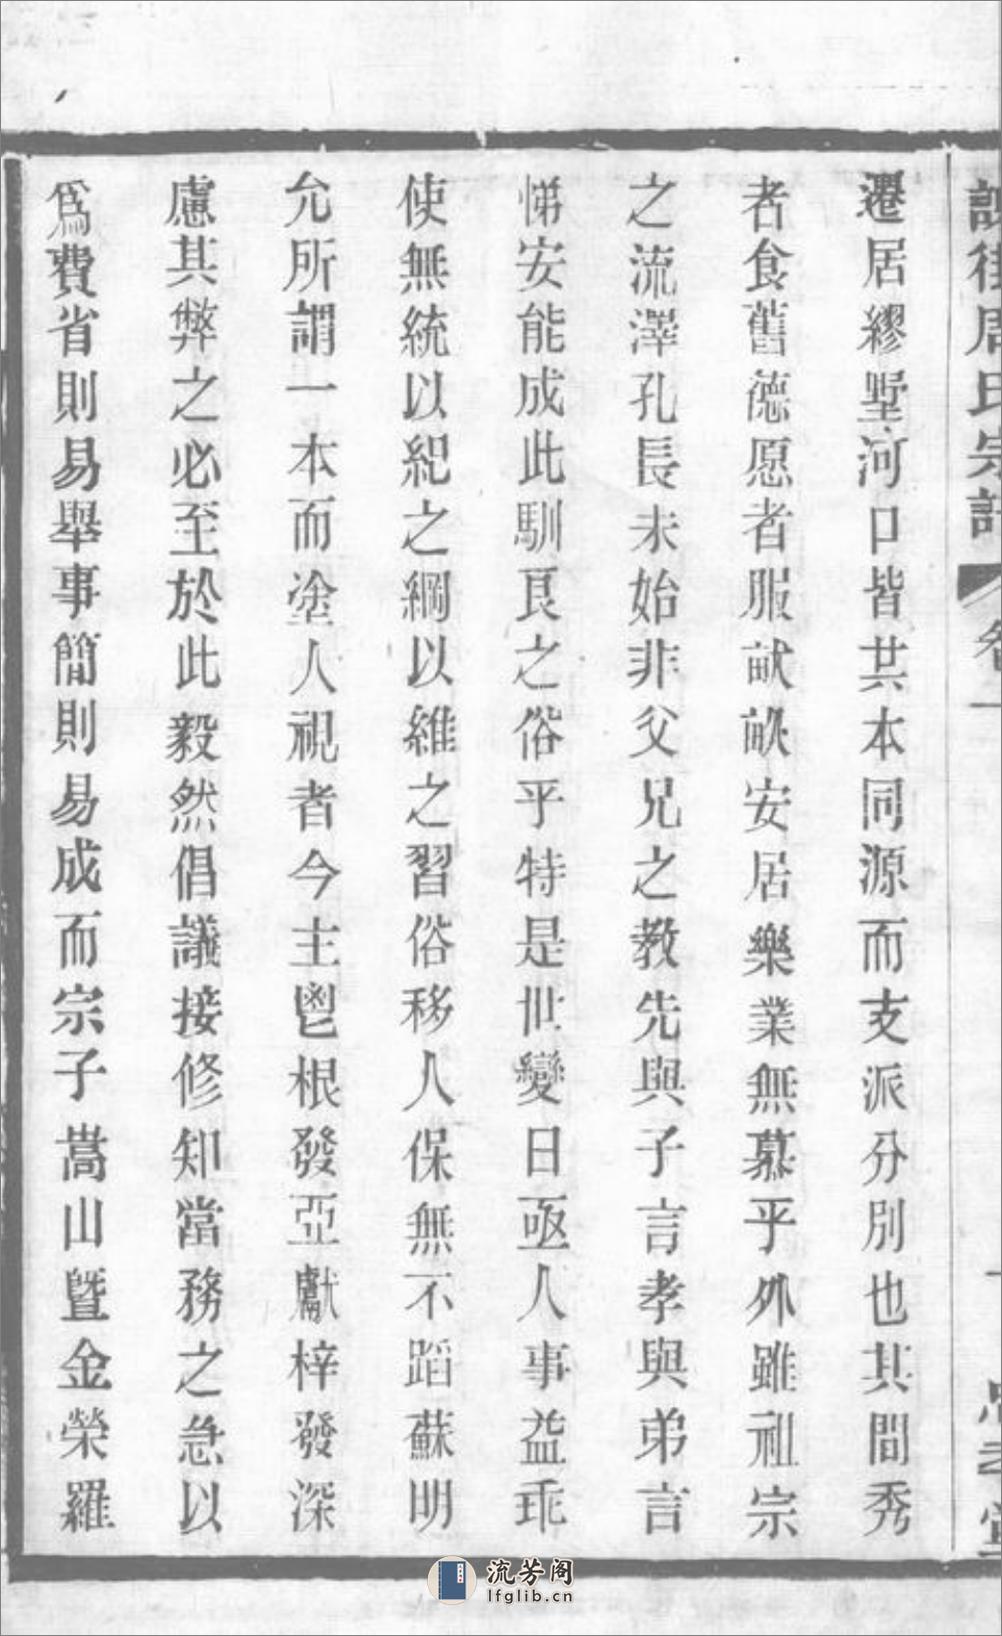 周氏宗譜 卷一
遷居繆墅河口皆共本同源而支派分別也其間秀
者食舊德愿者服畝畝安居樂業無慕乎外雖祖宗
之流澤孔長未始非父兄之教先與子言孝與弟言
悌安能成此馴良之俗乎特是世變日亟人事益乖
使無統以紀之綱以維之習俗移人保無不蹈蘇明
允所謂一本而塗人視者今主鬯根發亞獻梓發深
慮其弊之必至於此毅然倡議接修知當務之急以
為費省則易舉事簡則易成而宗子嵩山暨金榮羅
流芳阁
lfglib.cn